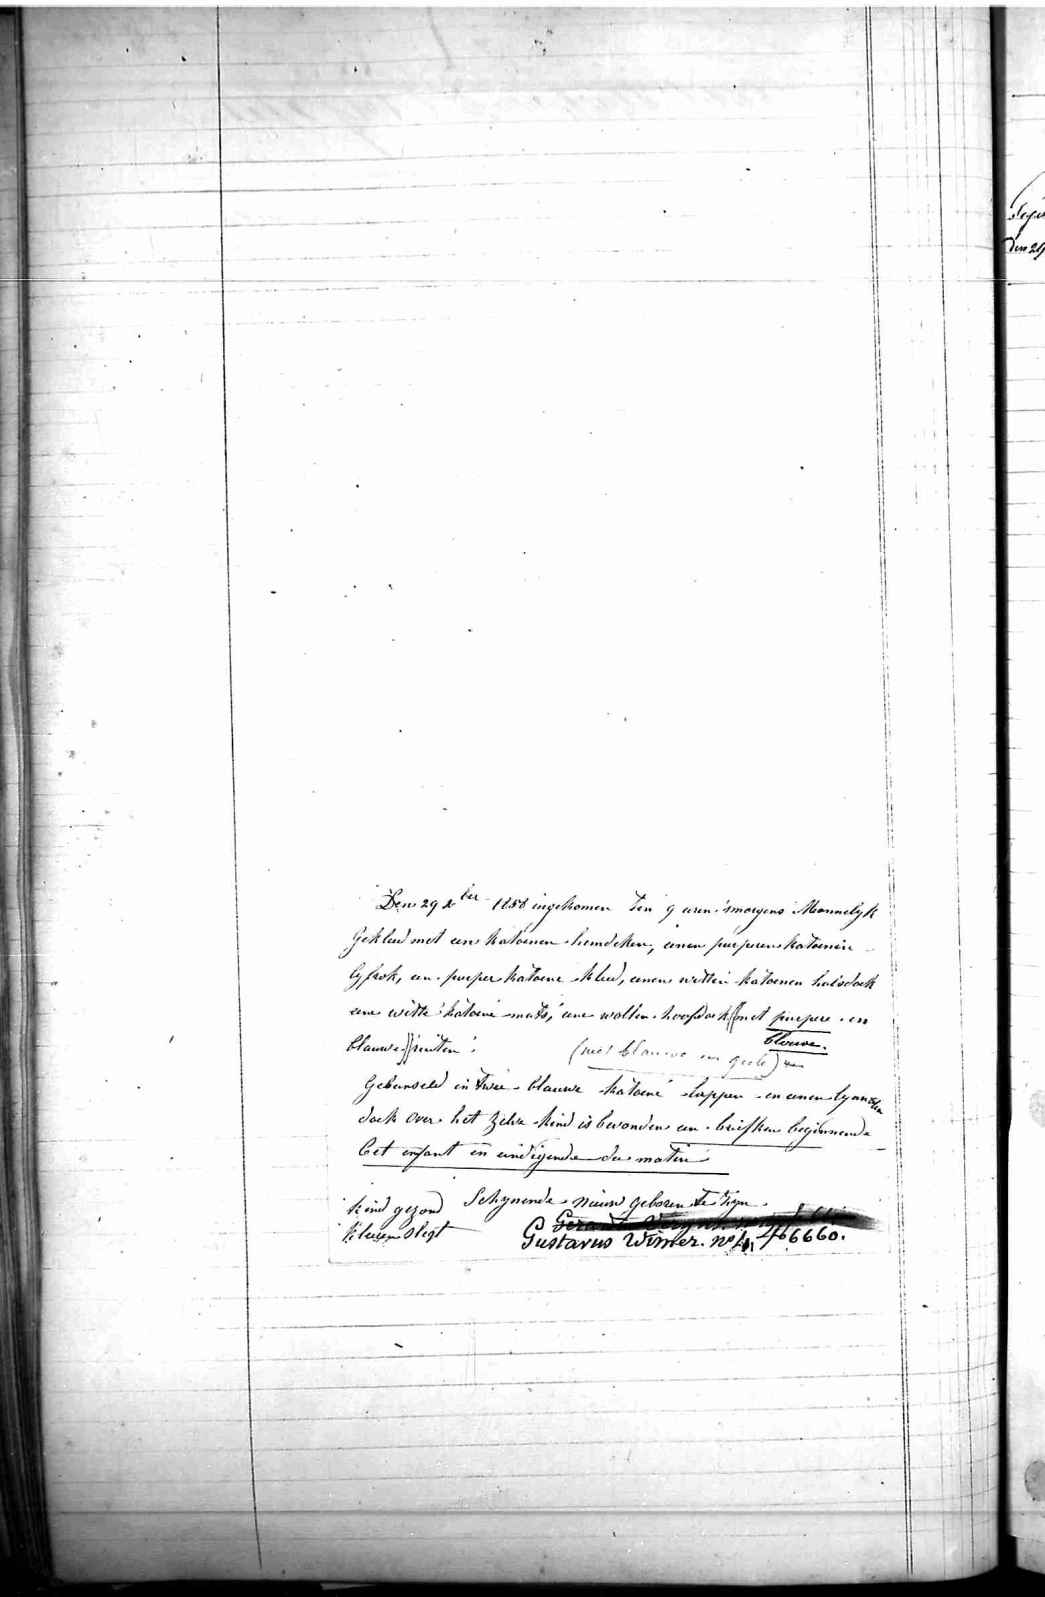 Den 29 xber 1858 ingekomen ten 9 uren 'smorgens Mannelyk
Gekleed met een katoenen hemdeken, eenen purperen katoenen
lyfrok, een purper katoene kleed, eenen witten katoenen halsdoek
eene witte katoene muts, eene wollen hoofdoek (met purpere en
blauwe) ruiten. blauwe.
(met blauwe en geele)
Gebunseld in twee blauwe katoene lappen en eenen lynen
doek over het zelve kind is bevonden een briefken beginnende
Cet enfant en eindigende du matin
Schynende nieuw geboren te zyn.
kind gezond
kleeren slegt
Gustavus Winter. no 466660.
den 29